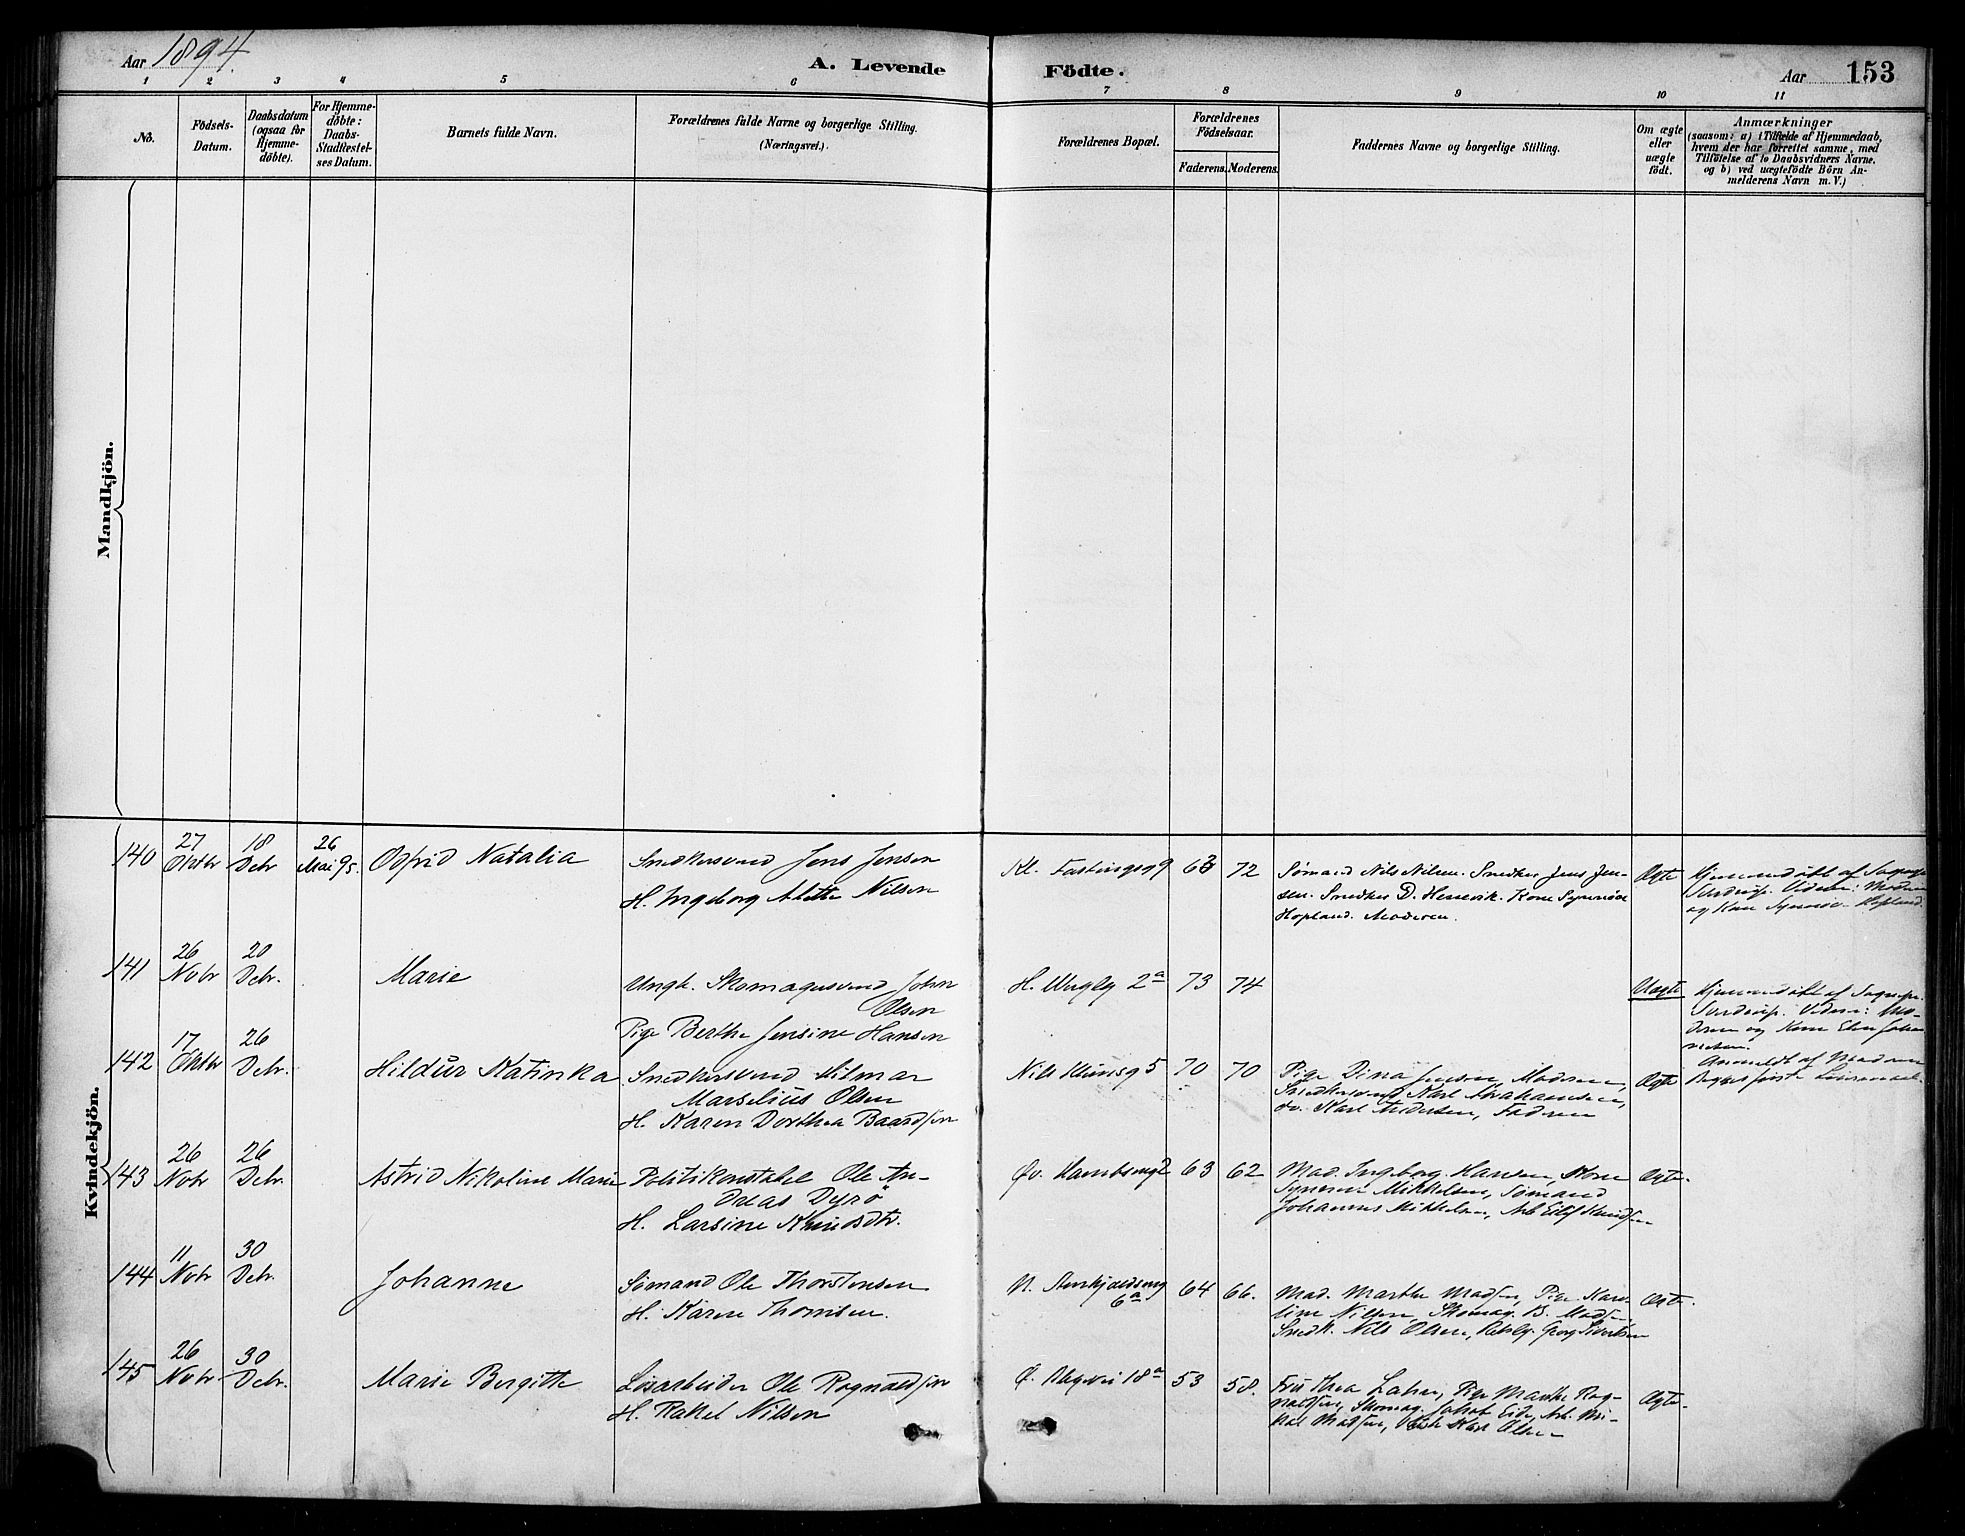 Aar 1894.
A. Levende Födte.
Aar 153
1 2 3 4 5 6 7 8 9 10 11
No.
Födsels-Datum.
Daabsdatum (ogsaa for Hjemme-döbte).
For Hjemme-döbte: Daabs-Stadfæstel-ses Datum.
Barnets fulde Navn.
Forældrenes fulde Navne og borgerlige Stilling.
(Næringsvei.)
Forældrenes Bopæl.
Forældrenes Födselsaar.
Faderens. Moderens.
Faddernes Navne og borgerlige Stilling.
Om ægte eller uægte födt.
Anmærkninger
(saasom: a) i Tilfælde af Hjemmedaab,
hvem der har forrettet samme, med
Tilföielse af to Daabsvidners Navne.
og b) ved uægtefödte Börn An-
melderens Navn m. V.)
Mandkjön.
Kvindekjön.
140 27 Oktbr 18 Debr 26 Mai 95. Odfrid Natalia
Snedkersvend Jens Jensen
H. Ingeborg Alette Nilsen
Kl. Fastingsg 9 63 72
Sømand Nils Nilsen. Snedker Jens Jen-
sen. Snedker D. Hennevik. Kone Synnøve
Hopland. Moderen.
Ægte
Hjemmedøbt af Sognepr.
og Kone Synnøve Hopland.
141 26 Novbr 20 Debr. Marie
Ungk. Skomagersvend John
Olsen
Pige Berthe Jensine Hansen
2a 73 74
Uægte
Hjemmedøbt af Sognepr.
Anmeldt af Moderen
142 17 Oktbr 26 Debr. Hildur Katinka
Snedkersvend Hilmar
Marselius Olsen
H. Karen Dorthea Baardsen
Nils Klimsg 5 70 70
Pige Dina Jensen, Moderen,
Snedkersvend Karl Abrahamsen,
do. Karl Andersen, Faderen
Ægte
143 26 Novbr 26 Debr. Astrid Nikoline Marie
Politikonstabel Ole An-
dreas Dyrö
H. Larsine Knudsdtr.
Øv. 2 63 62
Mad. Ingborg Hansen, Kone
Mikkelsen, Sømand
Johannes Mikkelsen, Arb. Eilif Knudsen
Ægte.
144 11 Novbr 30 Debr. Johanne
Sømand Ole Thorstensen
H. Karen Thomsen.
N. 6a 64 66.
Mad. Marthe Madsen, Pige Karo-
line Nilsen, Skomag. B. Madsen,
Snedk. Nils Olsen, Georg Sivertsen
Ægte.
145 26 Novbr 30 Debr. Marie Bergitte
Løsarbeider Ole Rognaldsen
H. Rakel Nilsen
18a 53 58.
Fru Thea Lahn, Pige Marthe Rog-
naldsen, Skomag. Jakob Eide, Arb. Mi-
kal Madsen, Karl Olsen
Ægte.